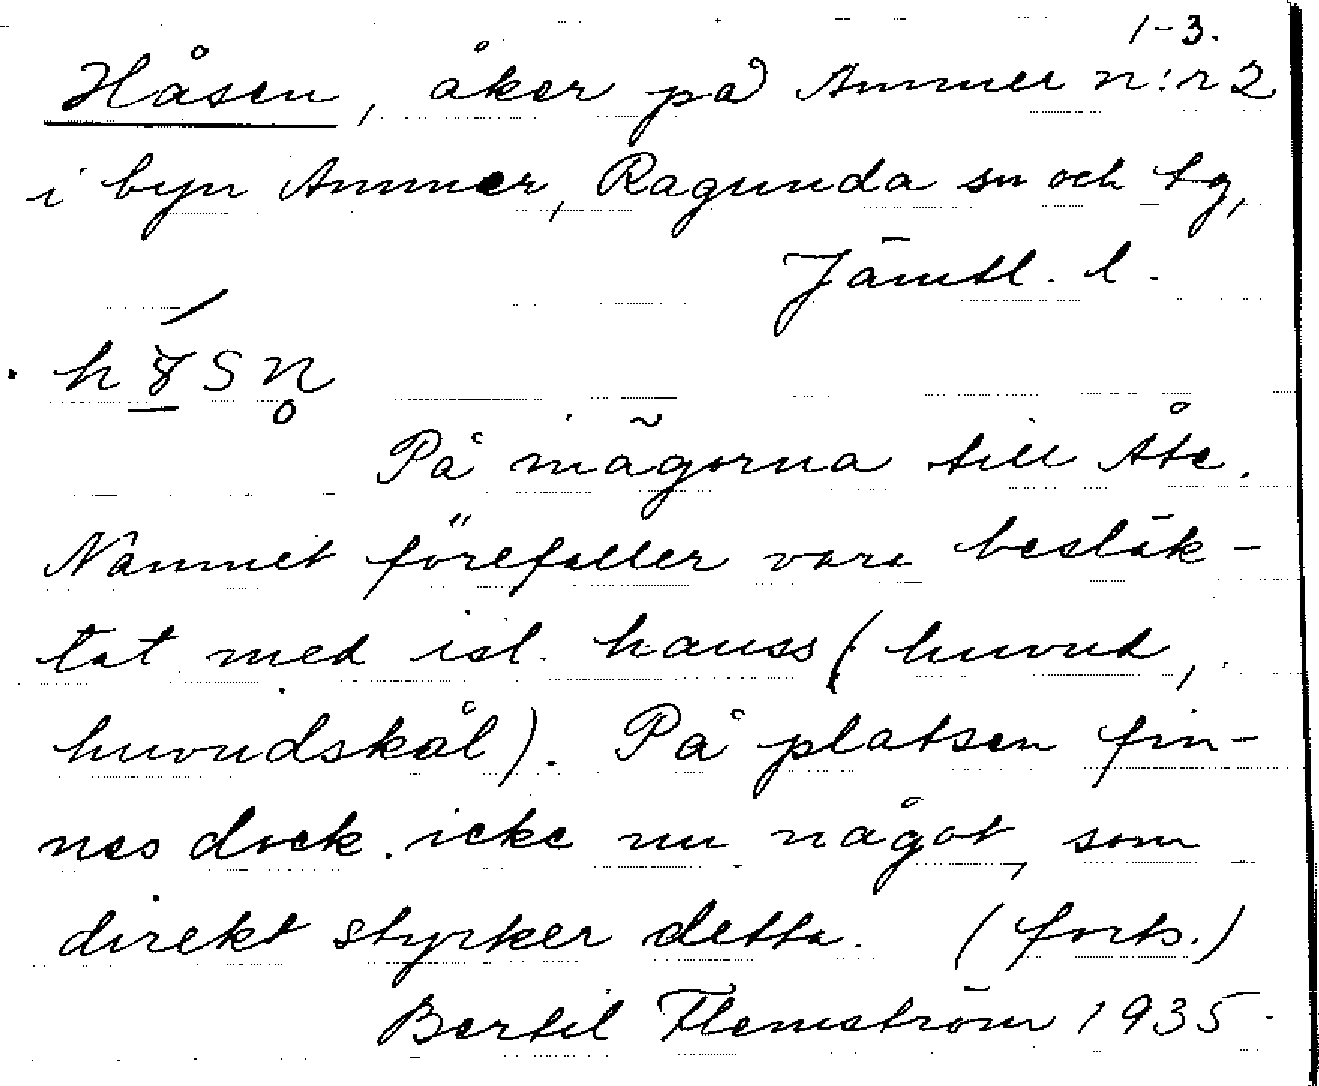 1-3.
Håsen, åker på Ammer n:r 2
i byn Ammer, Ragunda sn och tg,
Jämtl. l.
På mägorna till Åte.
Namnet förefaller vara besläk-
tat med isl. hauss (huvud,
huvudskål). På platsen fin-
nes dock icke nu något, som
direkt styrker detta. (forts.)
Bertil Flemström 1935.